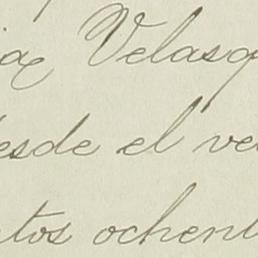 ia Velasq
desde el ve
ntos ochent